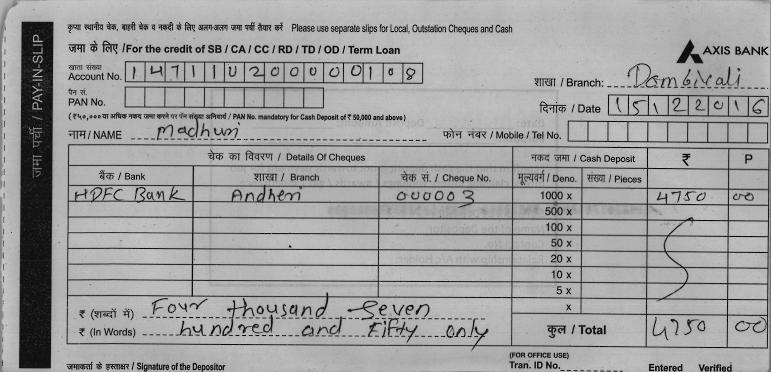 कृपया स्थानीय चेक, बाहरी चेक व नकदी के लिए अलग-अलग जमा पर्ची तैयार करें Please use separate slips for Local, Outstation Cheques and Cash
जमा के लिए /For the credit of SB / CA / CC / RD / TD / OD / Term Loan
AXIS BANK
जमा पर्ची / PAY-IN-SLIP
खाता संख्या
Account No. 147110200000108
शाखा / Branch: Dombivali
पैन सं.
PAN No.
दिनांक / Date 15122016
(₹५०,००० या अधिक नकद जमा करने पर पॅन संख्या अनिवार्य / PAN No. mandatory for Cash Deposit of ₹ 50,000 and above)
नाम/NAME Madhuri फोन नंबर / Mobile / Tel No.
चेक का विवरण / Details Of Cheques नकद जमा / Cash Deposit ₹ P
बैंक / Bank शाखा / Branch चेक सं. / Cheque No. मूल्यवर्ग / Deno. संख्या / Pieces
HDFC Bank Andheri 000003 1000 x 4750 00
500 x
100 x
50 x
20 x
10 x
5 x
x
₹ (शब्दों में) Four thousand Seven
₹ (In Words) hundred and Fifty only
कुल / Total 4750 00
(FOR OFFICE USE)
जमाकर्ता के हस्ताक्षर / Signature of the Depositor Tran. ID No. Entered Verified